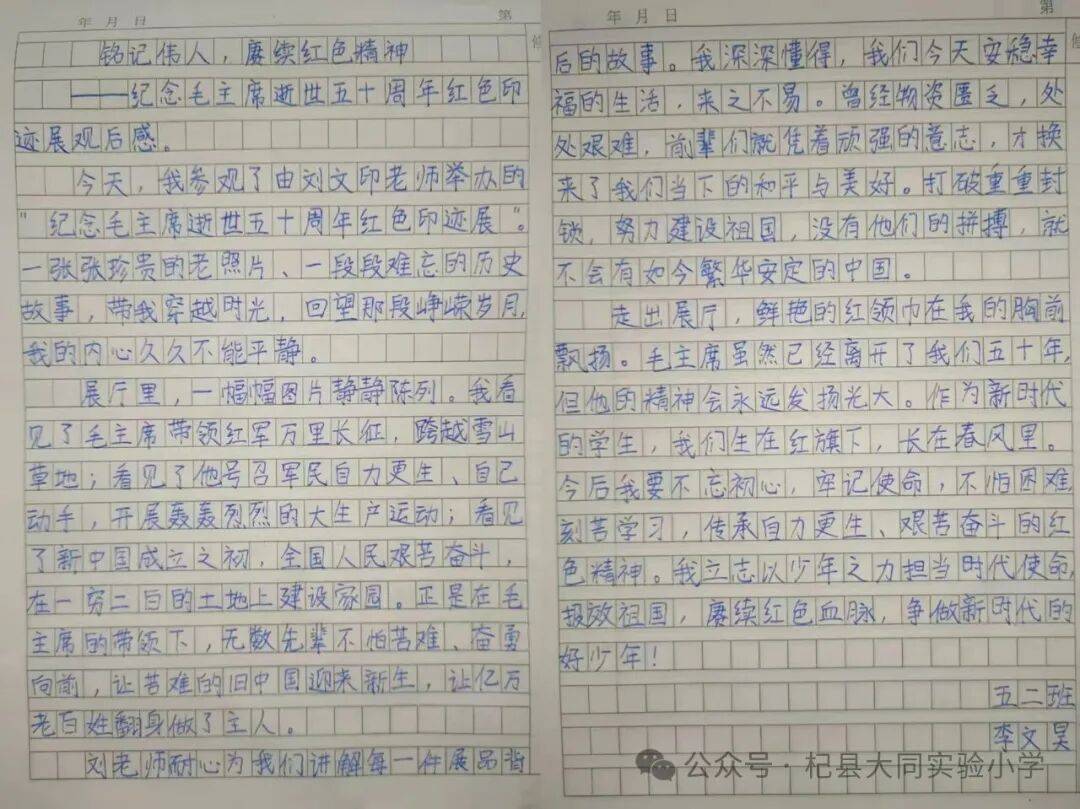 年 月 日
第
铭记伟人，赓续红色精神
——纪念毛主席逝世五十周年红色印
迹展观后感。
今天，我参观了由刘文印老师举办的
“纪念毛主席逝世五十周年红色印迹展”。
一张张珍贵的老照片、一段段难忘的历史
故事，带我穿越时光，回望那段峥嵘岁月，
我的内心久久不能平静。
展厅里，一幅幅图片静静陈列。我看
见了毛主席带领红军万里长征，跨越雪山
草地；看见了他号召军民自力更生、自己
动手，开展轰轰烈烈的大生产运动；看见
了新中国成立之初，全国人民艰苦奋斗，
在一穷二白的土地上建设家园。正是在毛
主席的带领下，无数先辈不怕苦难、奋勇
向前，让苦难的旧中国迎来新生，让亿万
老百姓翻身做了主人。
刘老师耐心为我们讲解每一件展品背
年 月 日
第
后的故事。我深深懂得，我们今天安稳幸
福的生活，来之不易。曾经物资匮乏，处
处艰难，前辈们就凭着顽强的意志，才换
来了我们当下的和平与美好。打破重重封
锁，努力建设祖国，没有他们的拼搏，就
不会有如今繁华安定的中国。
走出展厅，鲜艳的红领巾在我的胸前
飘扬。毛主席虽然已经离开了我们五十年，
但他的精神会永远发扬光大。作为新时代
的学生，我们生在红旗下，长在春风里。
今后我要不忘初心，牢记使命，不怕困难，
刻苦学习，传承自力更生、艰苦奋斗的红
色精神。我立志以少年之力担当时代使命，
报效祖国，赓续红色血脉，争做新时代的
好少年！
五二班
李文昊
公众号·杞县大同实验小学